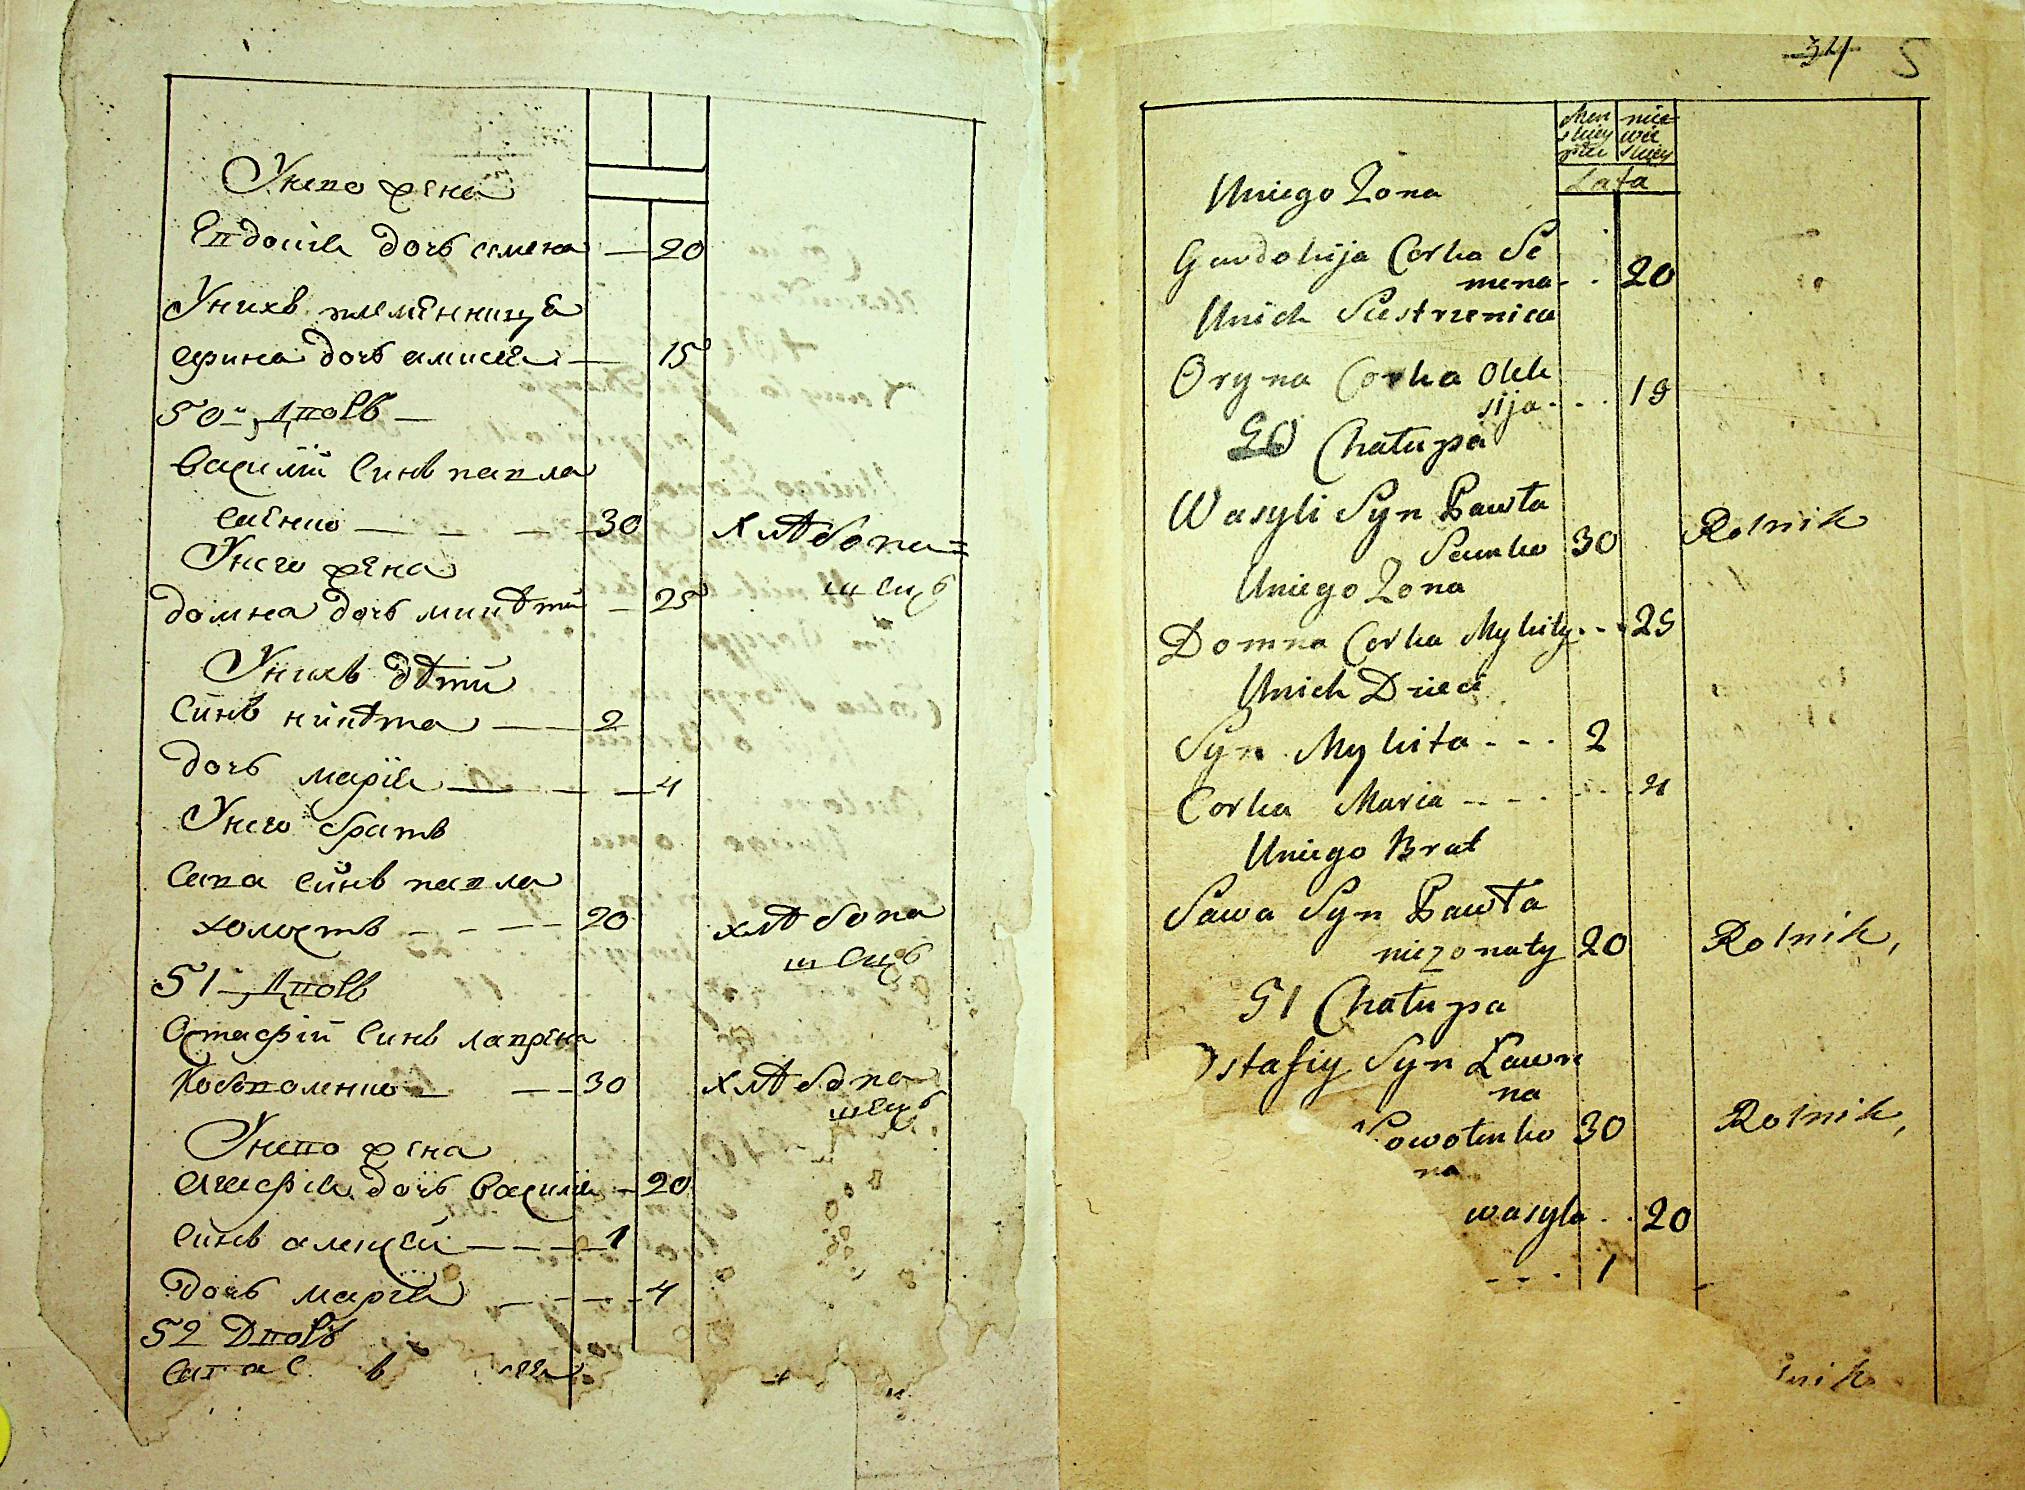 Унего жена
Евдокія дочь семена — 20
Унихъ племѣнница
арина дочь алиѯея — 15
50й Дворъ —
Василій Синъ павла
саенко — — — 30 хлѣбопа=
шецъ
Унего жена
домна дочь микѣти — 25
Унихъ дѣти
Синъ никѣта — 2
дочь марія — — — 4
Унего братъ
Сава синъ павла
холостъ — — — 20 хлѣбопа
шецъ
51 Дворъ
Остафій Синъ лаврѣна
— 30 хлѣбопа
шецъ
Унего жена
дочь Василія — 20
синъ алексѣй — — — 1
дочь марія — — — — 4
52 Дворъ
34 5
Męz nie
skiey wie
płci skiey
Lata
Uniego Zona
Gewdokija Corka Se
mena - - 20
Unich Siestrzenica
Oryna Corka Olek
sija - - - 15
50 Chałupa
Wasyli Syn Pawła
Saenko 30 Rolnik
Uniego Zona
Domna Corka Mykity - - 25
Unich Dzieci
Syn Mykita - - - 2
Corka Maria - - - - - - 4
Uniego Brat
Sawa Syn Pawła
niezonaty 20 Rolnik,
51 Chałupa
Ostafiy Syn Ławre
na
30 Rolnik,
na
wasyla - - 20
- - - - 1
lnik